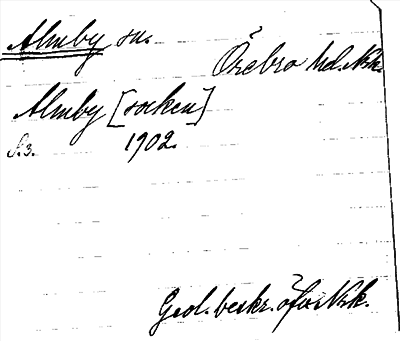 Almby sn.
Örebro hd. Nrk.
Almby [socken]
S. 3. 1902.
Geol. beskr. öfver Nrk.